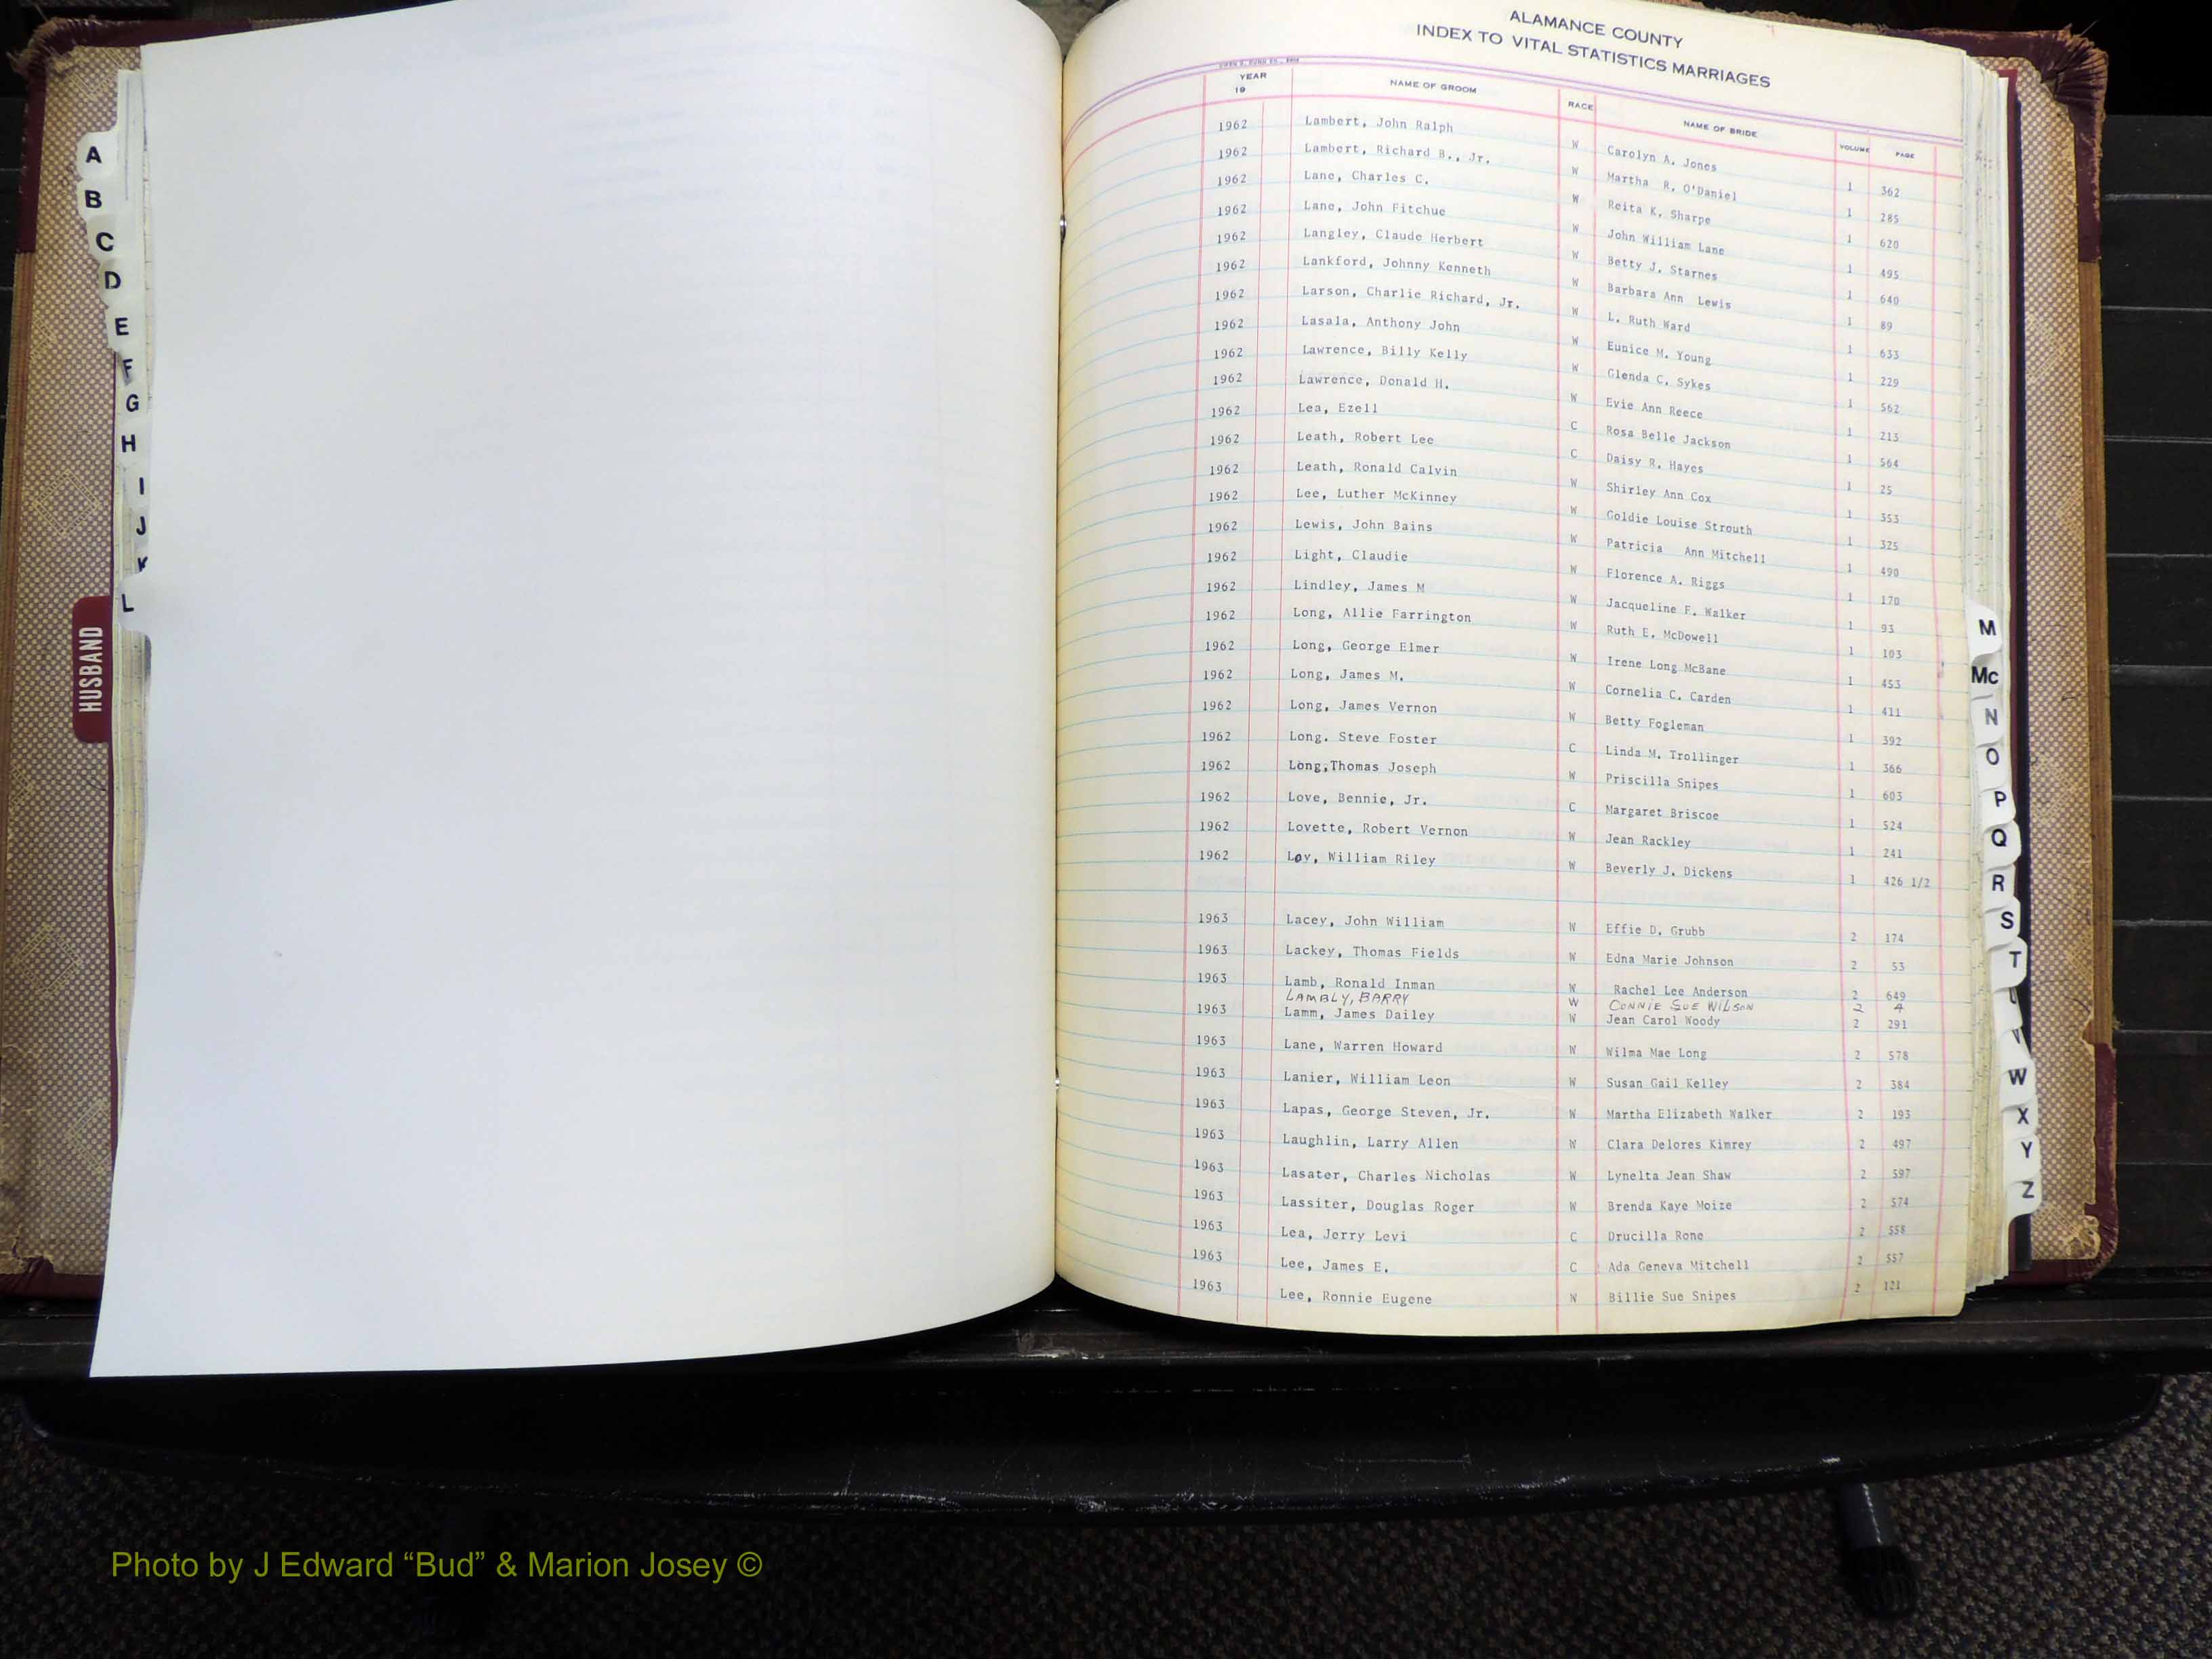 A
B
C
D
E
F
G
H
I
J
K
L
HUSBAND
ALAMANCE COUNTY
INDEX TO VITAL STATISTICS MARRIAGES
YEAR 19 NAME OF GROOM RACE NAME OF BRIDE VOLUME PAGE
1962 Lambert, John Ralph W Carolyn A. Jones 1 362
1962 Lambert, Richard B., Jr. W Martha R. O'Daniel 1 285
1962 Lane, Charles C. W Reita K. Sharpe 1 620
1962 Lane, John Fitchue W John William Lane 1 495
1962 Langley, Claude Herbert W Betty J. Starnes 1 640
1962 Lankford, Johnny Kenneth W Barbara Ann Lewis 1 89
1962 Larson, Charlie Richard, Jr. W L. Ruth Ward 1 633
1962 Lasala, Anthony John W Eunice M. Young 1 229
1962 Lawrence, Billy Kelly W Glenda C. Sykes 1 562
1962 Lawrence, Donald H. W Evie Ann Reece 1 213
1962 Lea, Ezell C Rosa Belle Jackson 1 564
1962 Leath, Robert Lee C Daisy R. Hayes 1 25
1962 Leath, Ronald Calvin W Shirley Ann Cox 1 353
1962 Lee, Luther McKinney W Goldie Louise Strouth 1 325
1962 Lewis, John Bains W Patricia Ann Mitchell 1 490
1962 Light, Claudie W Florence A. Riggs 1 170
1962 Lindley, James M W Jacqueline F. Walker 1 93
1962 Long, Allie Farrington W Ruth E. McDowell 1 103
1962 Long, George Elmer W Irene Long McBane 1 453
1962 Long, James M. W Cornelia C. Carden 1 411
1962 Long, James Vernon W Betty Fogleman 1 392
1962 Long. Steve Foster C Linda M. Trollinger 1 366
1962 Long,Thomas Joseph W Priscilla Snipes 1 603
1962 Love, Bennie, Jr. C Margaret Briscoe 1 524
1962 Lovette, Robert Vernon W Jean Rackley 1 241
1962 Loy, William Riley W Beverly J. Dickens 1 426 1/2
1963 Lacey, John William W Effie D. Grubb 2 174
1963 Lackey, Thomas Fields W Edna Marie Johnson 2 53
1963 Lamb, Ronald Inman W Rachel Lee Anderson 2 649
LAMBLY, BARRY W CONNIE SUE WILSON 2 4
1963 Lamm, James Dailey W Jean Carol Woody 2 291
1963 Lane, Warren Howard W Wilma Mae Long 2 578
1963 Lanier, William Leon W Susan Gail Kelley 2 384
1963 Lapas, George Steven, Jr. W Martha Elizabeth Walker 2 193
1963 Laughlin, Larry Allen W Clara Delores Kimrey 2 497
1963 Lasater, Charles Nicholas W Lynelta Jean Shaw 2 597
1963 Lassiter, Douglas Roger W Brenda Kaye Moize 2 574
1963 Lea, Jerry Levi C Drucilla Rone 2 558
1963 Lee, James E. C Ada Geneva Mitchell 2 557
1963 Lee, Ronnie Eugene W Billie Sue Snipes 2 121
M
Mc
N
O
P
Q
R
S
T
W
X
Y
Z
Photo by J Edward “Bud” & Marion Josey ©